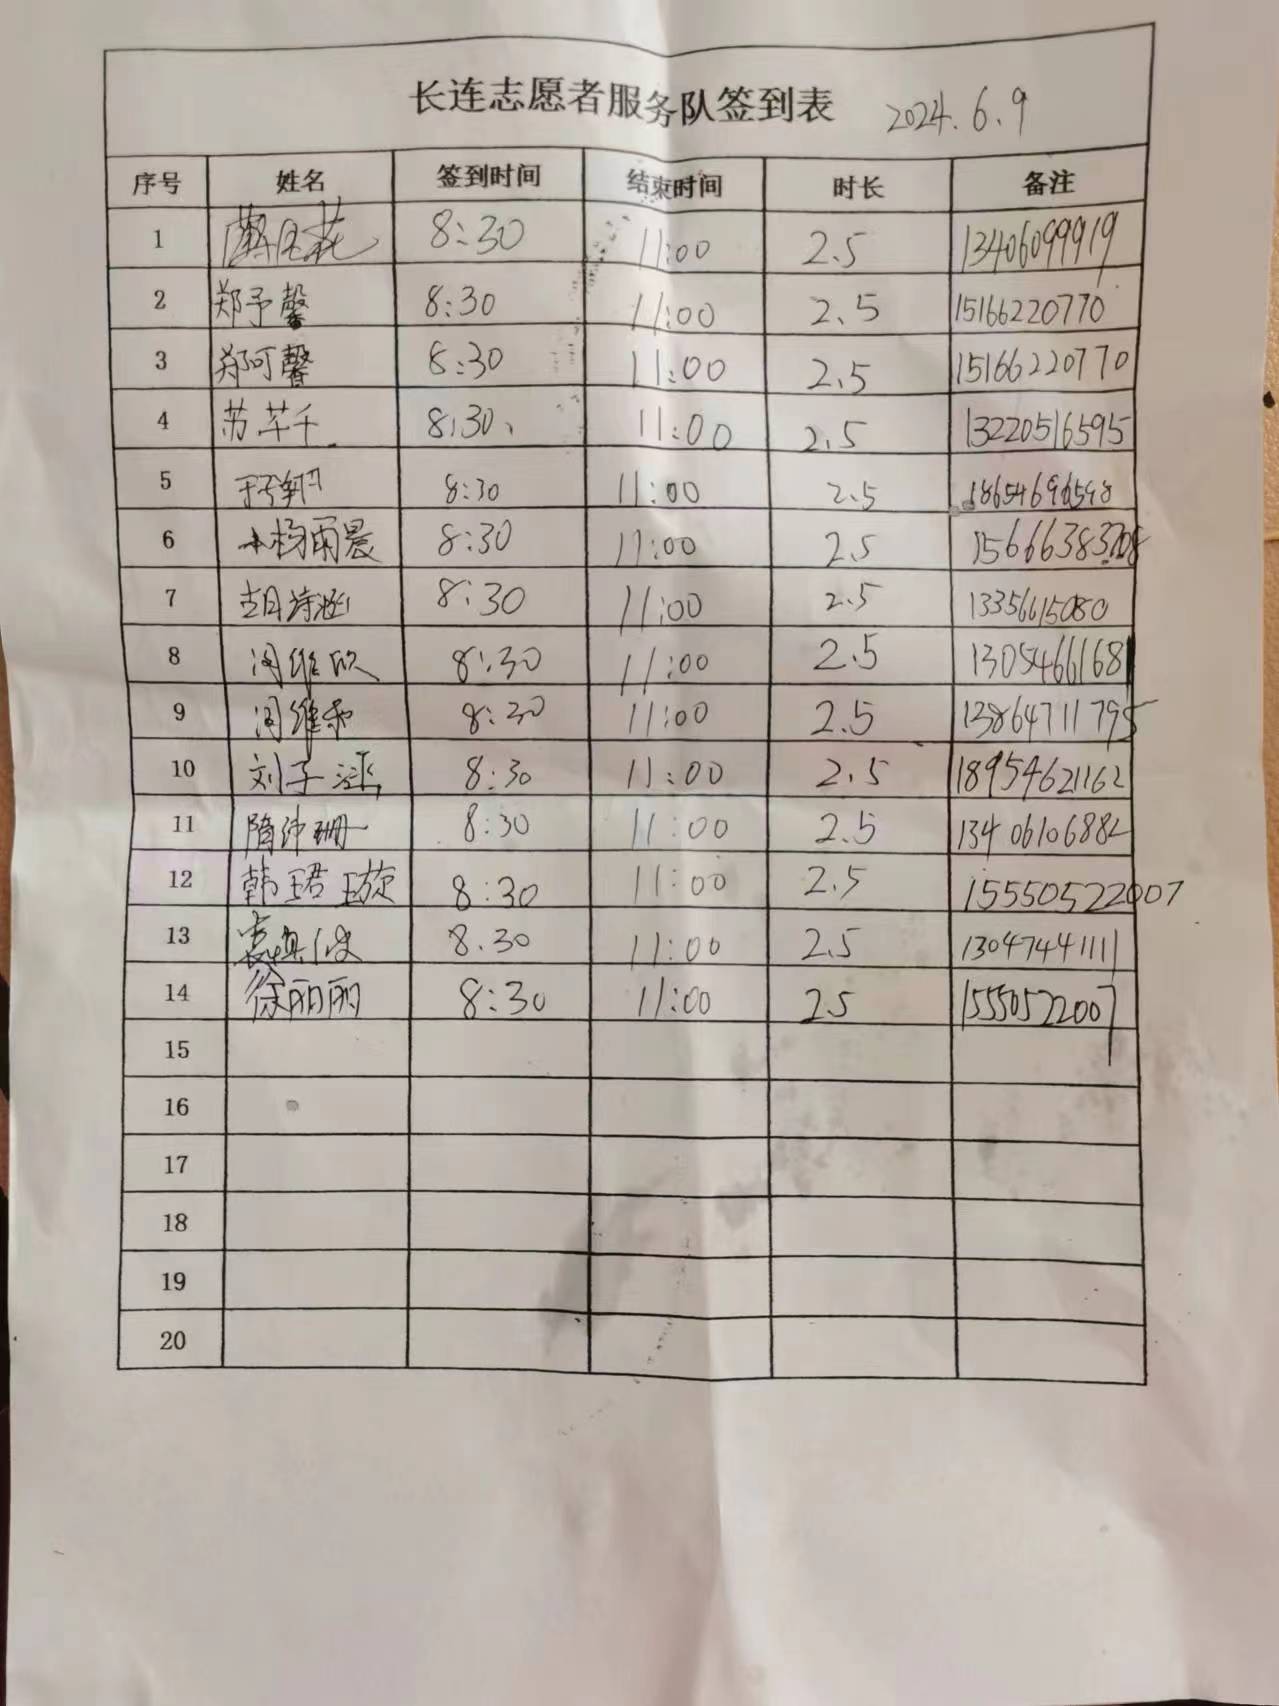 长连志愿者服务队签到表 2024.6.9
序号 姓名 签到时间 结束时间 时长 备注
1 8:30 11:00 2.5 13406099919
2 郑予馨 8:30 11:00 2.5 15166220770
3 郑可馨 8:30 11:00 2.5 15166220770
4 苏芊千 8:30、 11:00 2.5 13220516595
5 8:30 11:00 2.5 18654696598
6 杨雨晨 8:30 11:00 2.5
7 胡诗涵 8:30 11:00 2.5 13356615080
8 闫维欣 8:30 11:00 2.5 13054661681
9 闫维和 8:30 11:00 2.5 13864711795
10 刘子涵 8:30 11:00 2.5 18954621162
11 隋坤珊 8:30 11:00 2.5 13406106882
12 韩珺璇 8:30 11:00 2.5 15550522007
13 8.30 11:00 2.5 13047441111
14 徐丽丽 8:30 11:00 2.5 15550522007
15
16
17
18
19
20